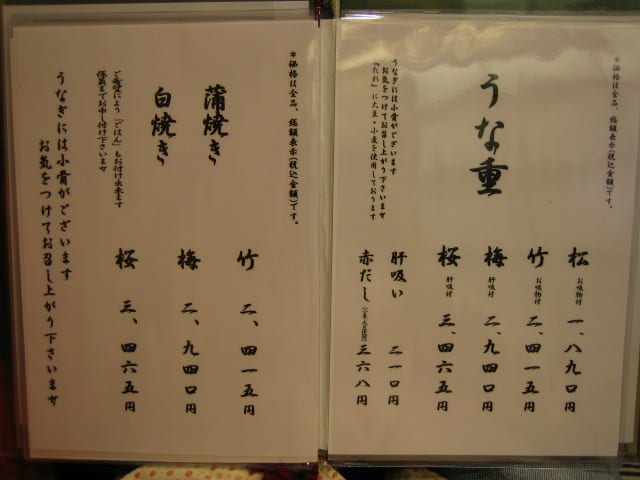 *価格は全品、総額表示(税込金額)です。
うな重
うなぎには小骨がございます
お気をつけてお召し上がり下さいませ
「たれ」に大豆・小麦を使用しております
松 お吸物付 一、八九〇円
竹 お吸物付 二、四一五円
梅 肝吸付 二、九四〇円
桜 肝吸付 三、四六五円
肝吸い 二一〇円
赤だし 三六八円
*価格は全品、総額表示(税込金額)です。
蒲焼き
白焼き
ご希望により「ごはん」もお付け出来ます
係員までお申し付け下さいませ
竹 二、四一五円
梅 二、九四〇円
桜 三、四六五円
うなぎには小骨がございます
お気をつけてお召し上がり下さいませ